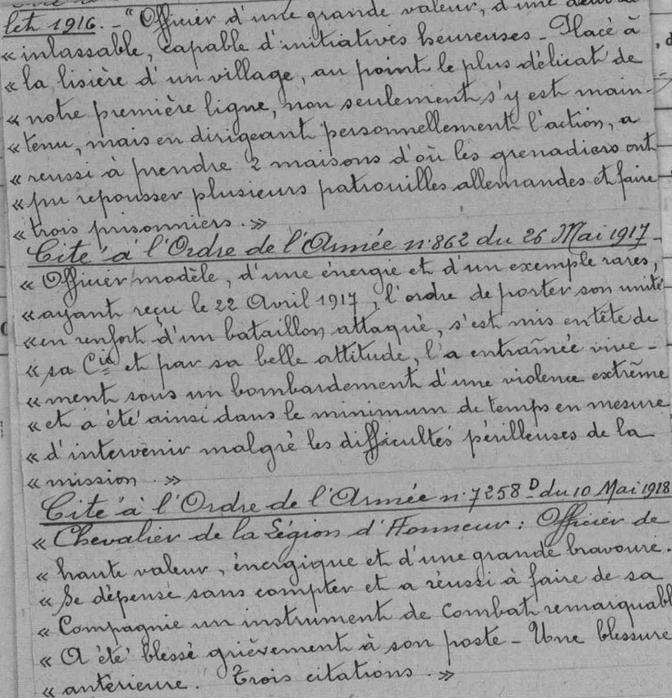 let 1916. - "Officier d'une grande valeur, d'une
« inlassable, capable d'initiatives heureuses - Placé à
« la lisière d'un village, au point le plus délicat de
« notre première ligne, non seulement s'y est main-
« tenu, mais en dirigeant personnellement l'action, a
« reussi à prendre 2 maisons d'où les grenadiers ont
« pu repousser plusieurs patrouilles allemandes et faire
« trois prisonniers. »
Cité à l'Ordre de l'Armée n° 862 du 26 Mai 1917 -
« Officier modèle, d'une énergie et d'un exemple rares,
« ayant reçu le 22 Avril 1917, l'ordre de porter son unité
« en renfort d'un bataillon attaqué, s'est mis en tête de
« sa Cie et par sa belle attitude, l'a entraînée vive-
« ment sous un bombardement d'une violence extrême
« et a été ainsi dans le minimum de temps en mesure
« d'intervenir malgré les difficultés périlleuses de la
« mission. »
Cité à l'Ordre de l'Armée n° 7258 D du 10 Mai 1918
« Chevalier de la Légion d'Honneur : Officier de
« haute valeur, énergique et d'une grande bravoure.
« Se dépense sans compter et a réussi à faire de sa
« Compagnie un instrument de combat remarquabl
« A été blessé grièvement à son poste - Une blessure
« antérieure. Trois citations. »